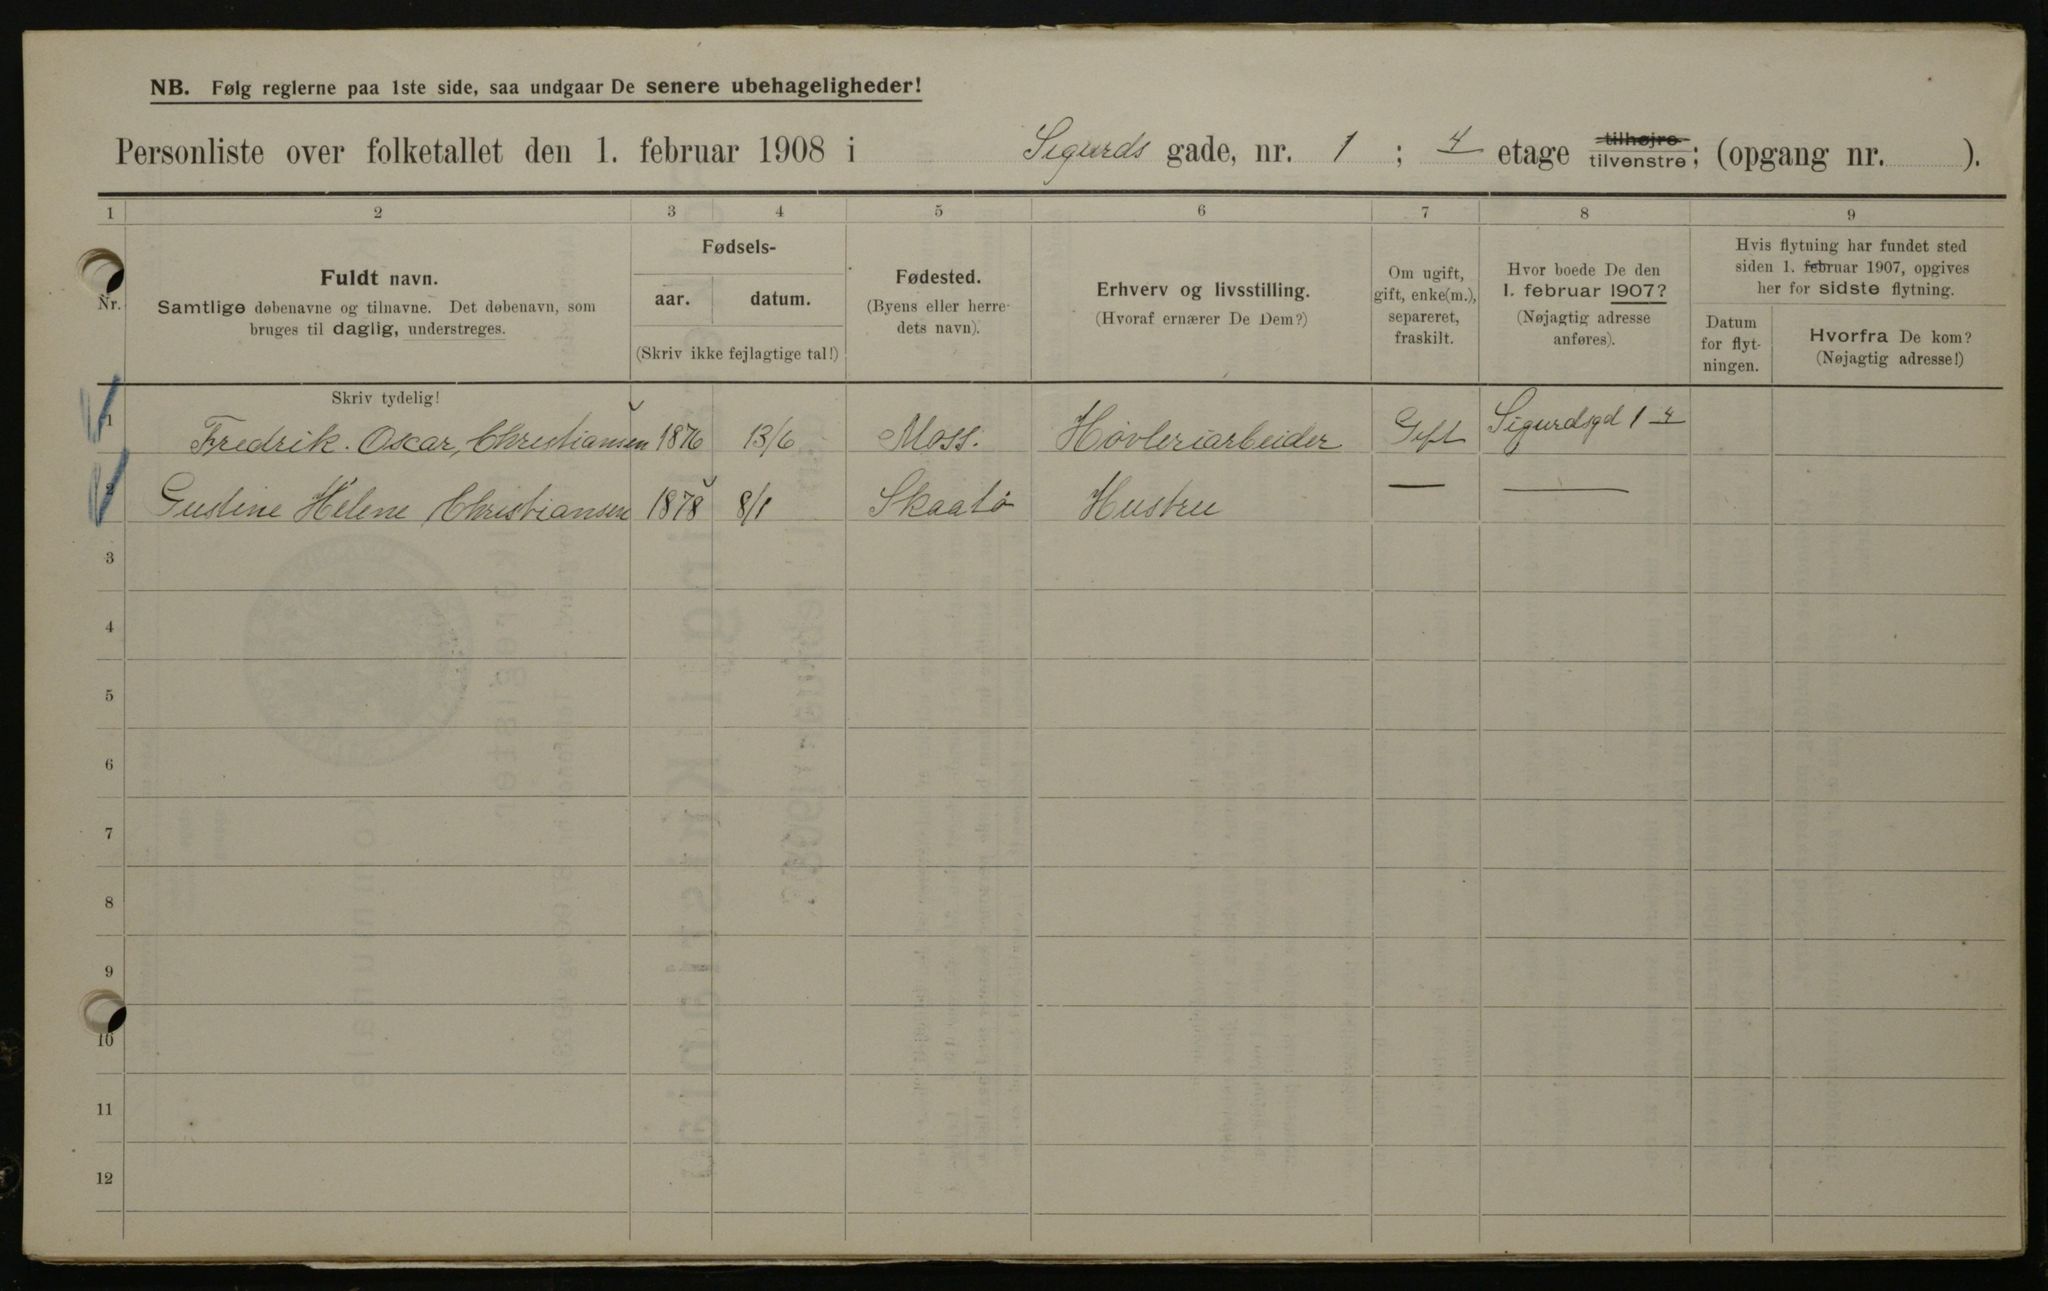 NB. Følg reglerne paa 1ste side, saa undgaar De senere ubehageligheder!
Personliste over folketallet den 1. februar 1908 i Sigurds gade, nr. 1 ; 4 etage tilhøjre tilvenstre; (opgang nr. ).
1 2 3 4 5 6 7 8 9
Nr.
Fuldt navn.
Samtlige døbenavne og tilnavne. Det døbenavn, som
bruges til daglig, understreges.
Skriv tydelig!
Fødsels-
aar. datum.
(Skriv ikke fejlagtige tal!)
Fødested.
(Byens eller herre-
dets navn).
Erhverv og livsstilling.
(Hvoraf ernærer De Dem?)
Om ugift,
gift, enke(m.),
separeret,
fraskilt.
Hvor boede De den
1. februar 1907?
(Nøjagtig adresse
anføres).
Hvis flytning har fundet sted
siden 1. februar 1907, opgives
her for sidste flytning.
Datum
for flyt-
ningen.
Hvorfra De kom?
(Nøjagtig adresse!)
1 Fredrik. Oscar, Christiansen 1876 13/6 Moss. Høvleriarbeider Gift Sigurdsgd 1 4
2 Gustine Helene Christiansen 1878 8/1 Skaatø Hustru — —
3
4
5
6
7
8
9
10
11
12